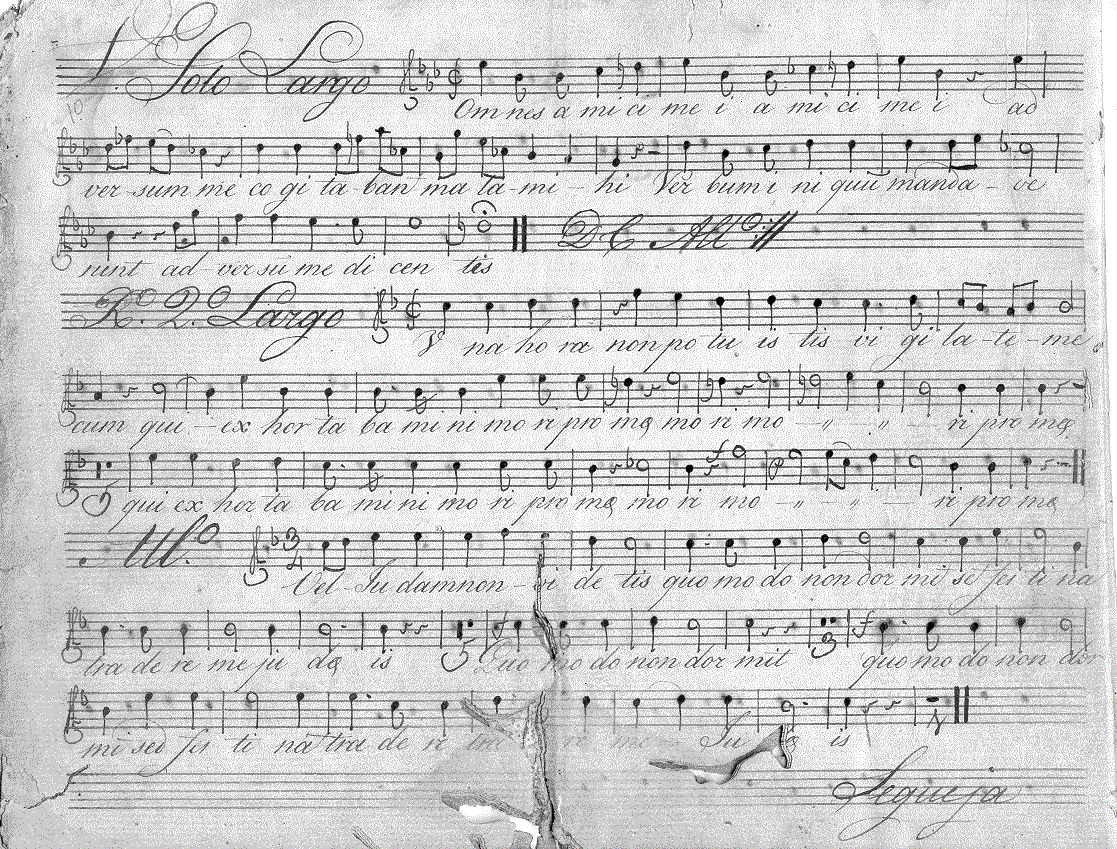 V. Solo Largo
Om nes a mi ci me i a mi ci me i ad
ver-sum me co gi ta-ban ma la-mi-hi Ver bum i ni quū manda-ve
runt ad-ver sū me di cen tes
D C All.º
R.º 2.º Largo
V na ho ra non po tu is tis vi gi la-te-me
cum qui-ex hor ta ba mi ni mo ri pro me mo ri mo - " - " - ri pro me
5 qui ex hor ta ba mi ni mo ri pro me mo ri mo - " - " ri pro me
All.º 3 4
Vel-Iu dam non-vi de tis quo mo do non dor mi sed fes ti na
tra de re me ju dæ is 5 Quo mo do non dor mit 3 quo mo do non dor
mi sed fes ti na tra de re me Iu is
Segue ja